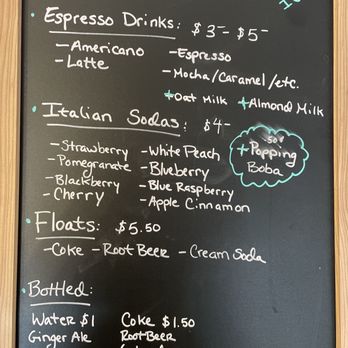 • Espresso Drinks: $3- - $5-
-Americano -Espresso
-Latte -Mocha/Caramel/etc.
+Oat Milk +Almond Milk
• Italian Sodas: $4-
-Strawberry -White Peach
-Pomegranate -Blueberry
-Blackberry -Blue Raspberry
-Cherry -Apple Cinnamon
.50¢
+Popping
Boba
• Floats: $5.50
-Coke -Root Beer -Cream Soda
• Bottled:
Water $1 Coke $1.50
Ginger Ale Root Beer